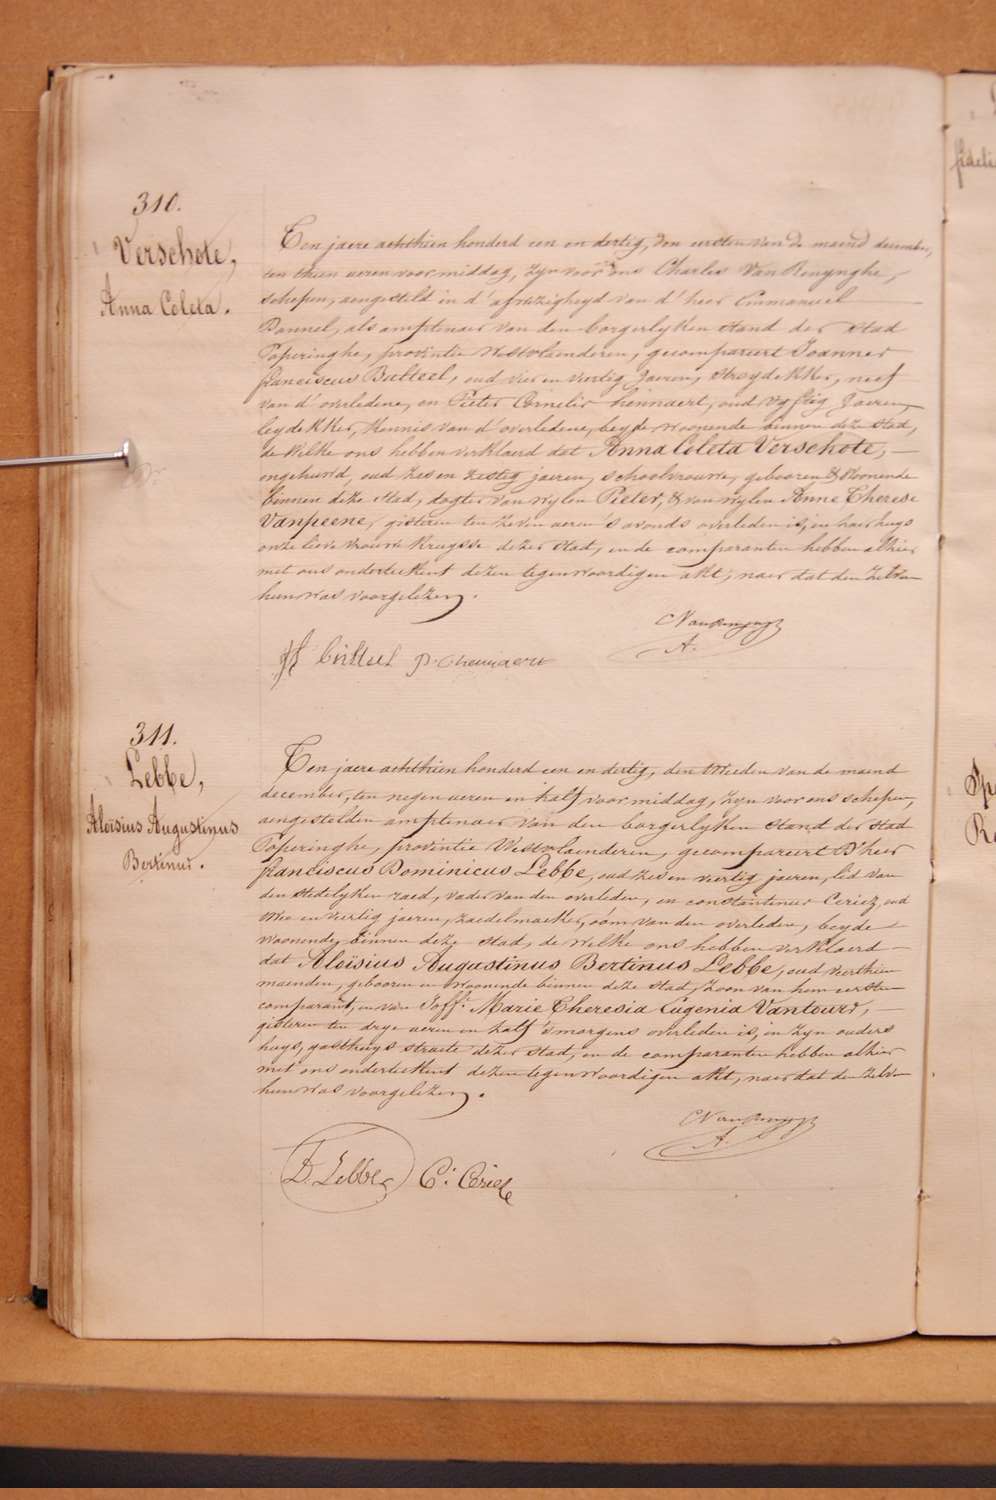 310.
Verschote,
Anna Coleta.
Ten jaere achthien honderd een en dertig, den eersten van de maend december,
ten thien ueren voormiddag, zyn voor ons Charles Van Renynghe,
schepen, aengesteld in d'afwezigheyd van d'heer Emmanuel
Pannel, als amptenaer van den borgerlyken stand der stad
Poperinghe, provintie Westvlaenderen, gecompareert Joannes
franciscus Batteel, oud vier en veertig jaeren, stroydekker, neef
van d'overledene, en Pieter Cornelis hennaert, oud vyftig jaeren,
leydekker, kennis van d'overledene, beyde woonende binnen deze stad,
de welke ons hebben verklaerd dat Anna Coleta Verschote,
ongehuwd, oud zes en zestig jaeren, schoolvrouwe, gebooren & woonende
binnen deze stad, dogter van wylen Pieter, & van wylen Anne Therese
Vanpeene, gisteren ten zeven ueren 's avonds overleden is, in haer huys
onze lieve vrouwe kruysse dezer stad, en de comparanten hebben alhier
met ons onderteekent dezen tegenwoordigen akt, naer dat den zelven
hun was voorgelezen.
CVanRenynghe
A.
311.
Lebbe,
Aloïsius Augustinus
Bertinus.
Ten jaere achthien honderd een en dertig, den tweeden van de maend
december, ten negen ueren en half voormiddag, zyn voor ons schepen,
aengestelden amptenaer van den borgerlyken stand der stad
Poperinghe, provintie Westvlaenderen, gecompareert D'heer
franciscus Dominicus Lebbe, oud zes en veertig jaeren, lid van
den stedelyken raed, vader van den overleden, en constantinus Ceriez, oud
twee en veertig jaeren, zaedelmaeker, oom van den overleden, beyde
woonende binnen deze stad, de welke ons hebben verklaerd
dat Aloïsius Augustinus Bertinus Lebbe, oud veerthien
maenden, gebooren en woonende binnen deze stad, zoon van hem eersten
comparant, en van Joff: Marie Theresia Eugenia Vantours,
gisteren ten drye ueren en half 's morgens overleden is, in zyn ouders
huys, gasthuys straete dezer stad, en de comparanten hebben alhier
met ons onderteekent dezen tegenwoordigen akt, naer dat den zelven
hun was voorgelezen.
CVanRenynghe
A.
D. Lebbe C: Ceriez